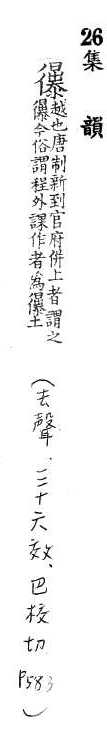 26集　韻
忁越也唐制新到官府併上者謂之
忁今俗謂程外課作者為忁土
（去聲．三十六效、巴校切 P583）